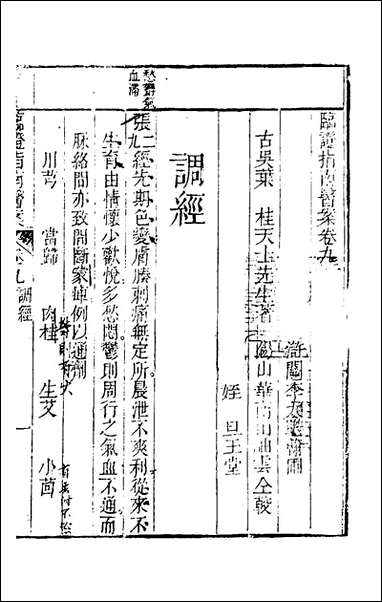 臨證指南醫案卷九
古吳葉 桂天士先生著
滸關李大瞻翰圃
錫山華南田岫雲仝較
姪 旦玉堂
調經
愁鬱氣
血滯
張二九 經先期色變膚腠刺痛無定所晨泄不爽利從來不
生育由情懷少歡悅多愁悶鬱則周行之氣血不通而
脈絡間亦致間斷蒙埠例以通劑
川芎 當歸 肉桂 生艾 小茴
臨證指南醫案 卷九 調經 一